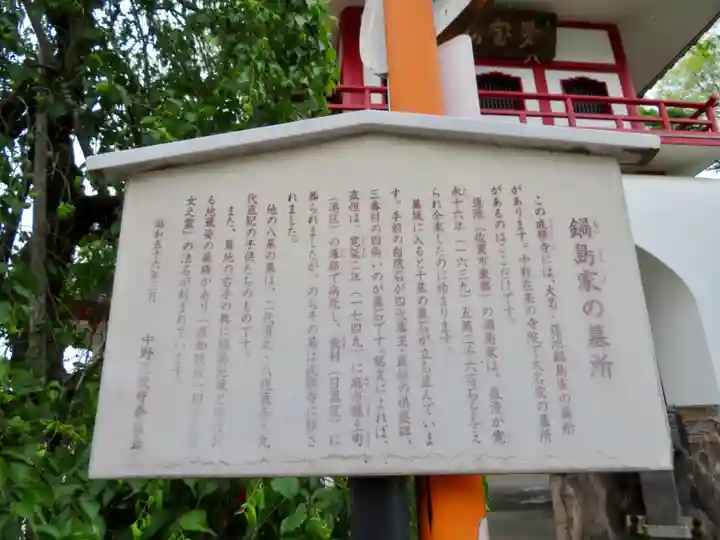 鍋島家の墓所
この成願寺には、大名・蓮池鍋島家の墓所
があります。中野在来の寺院で大名家の墓所
があるのはここだけです。
蓮池（佐賀市東部）の鍋島家は、直澄が寛
永十六年（一六三九）五萬二千六百石を与え
られ分家したのに始まります。
墓域に入ると十基の墓石が立ち並んでいま
す。手前の自然石が四代藩主・直恒の供養碑、
三番目の四角いのが墓石です。銘文によれば、
直恒は、寛延二年（一七四九）に麻布龍土町
（港区）の藩邸で病死し、衾村（目黒区）に
葬られましたが、のちその墓は成願寺に移さ
れました。
他の八基の墓は、二代直之・八代直
代直紀の子供たちのものです。
また、墓地の右手の奥に鍋島
る地蔵姿の墓碑があり
女之霊」の法名が刻まれています。
昭和五十六年三月
中野 教育委員会